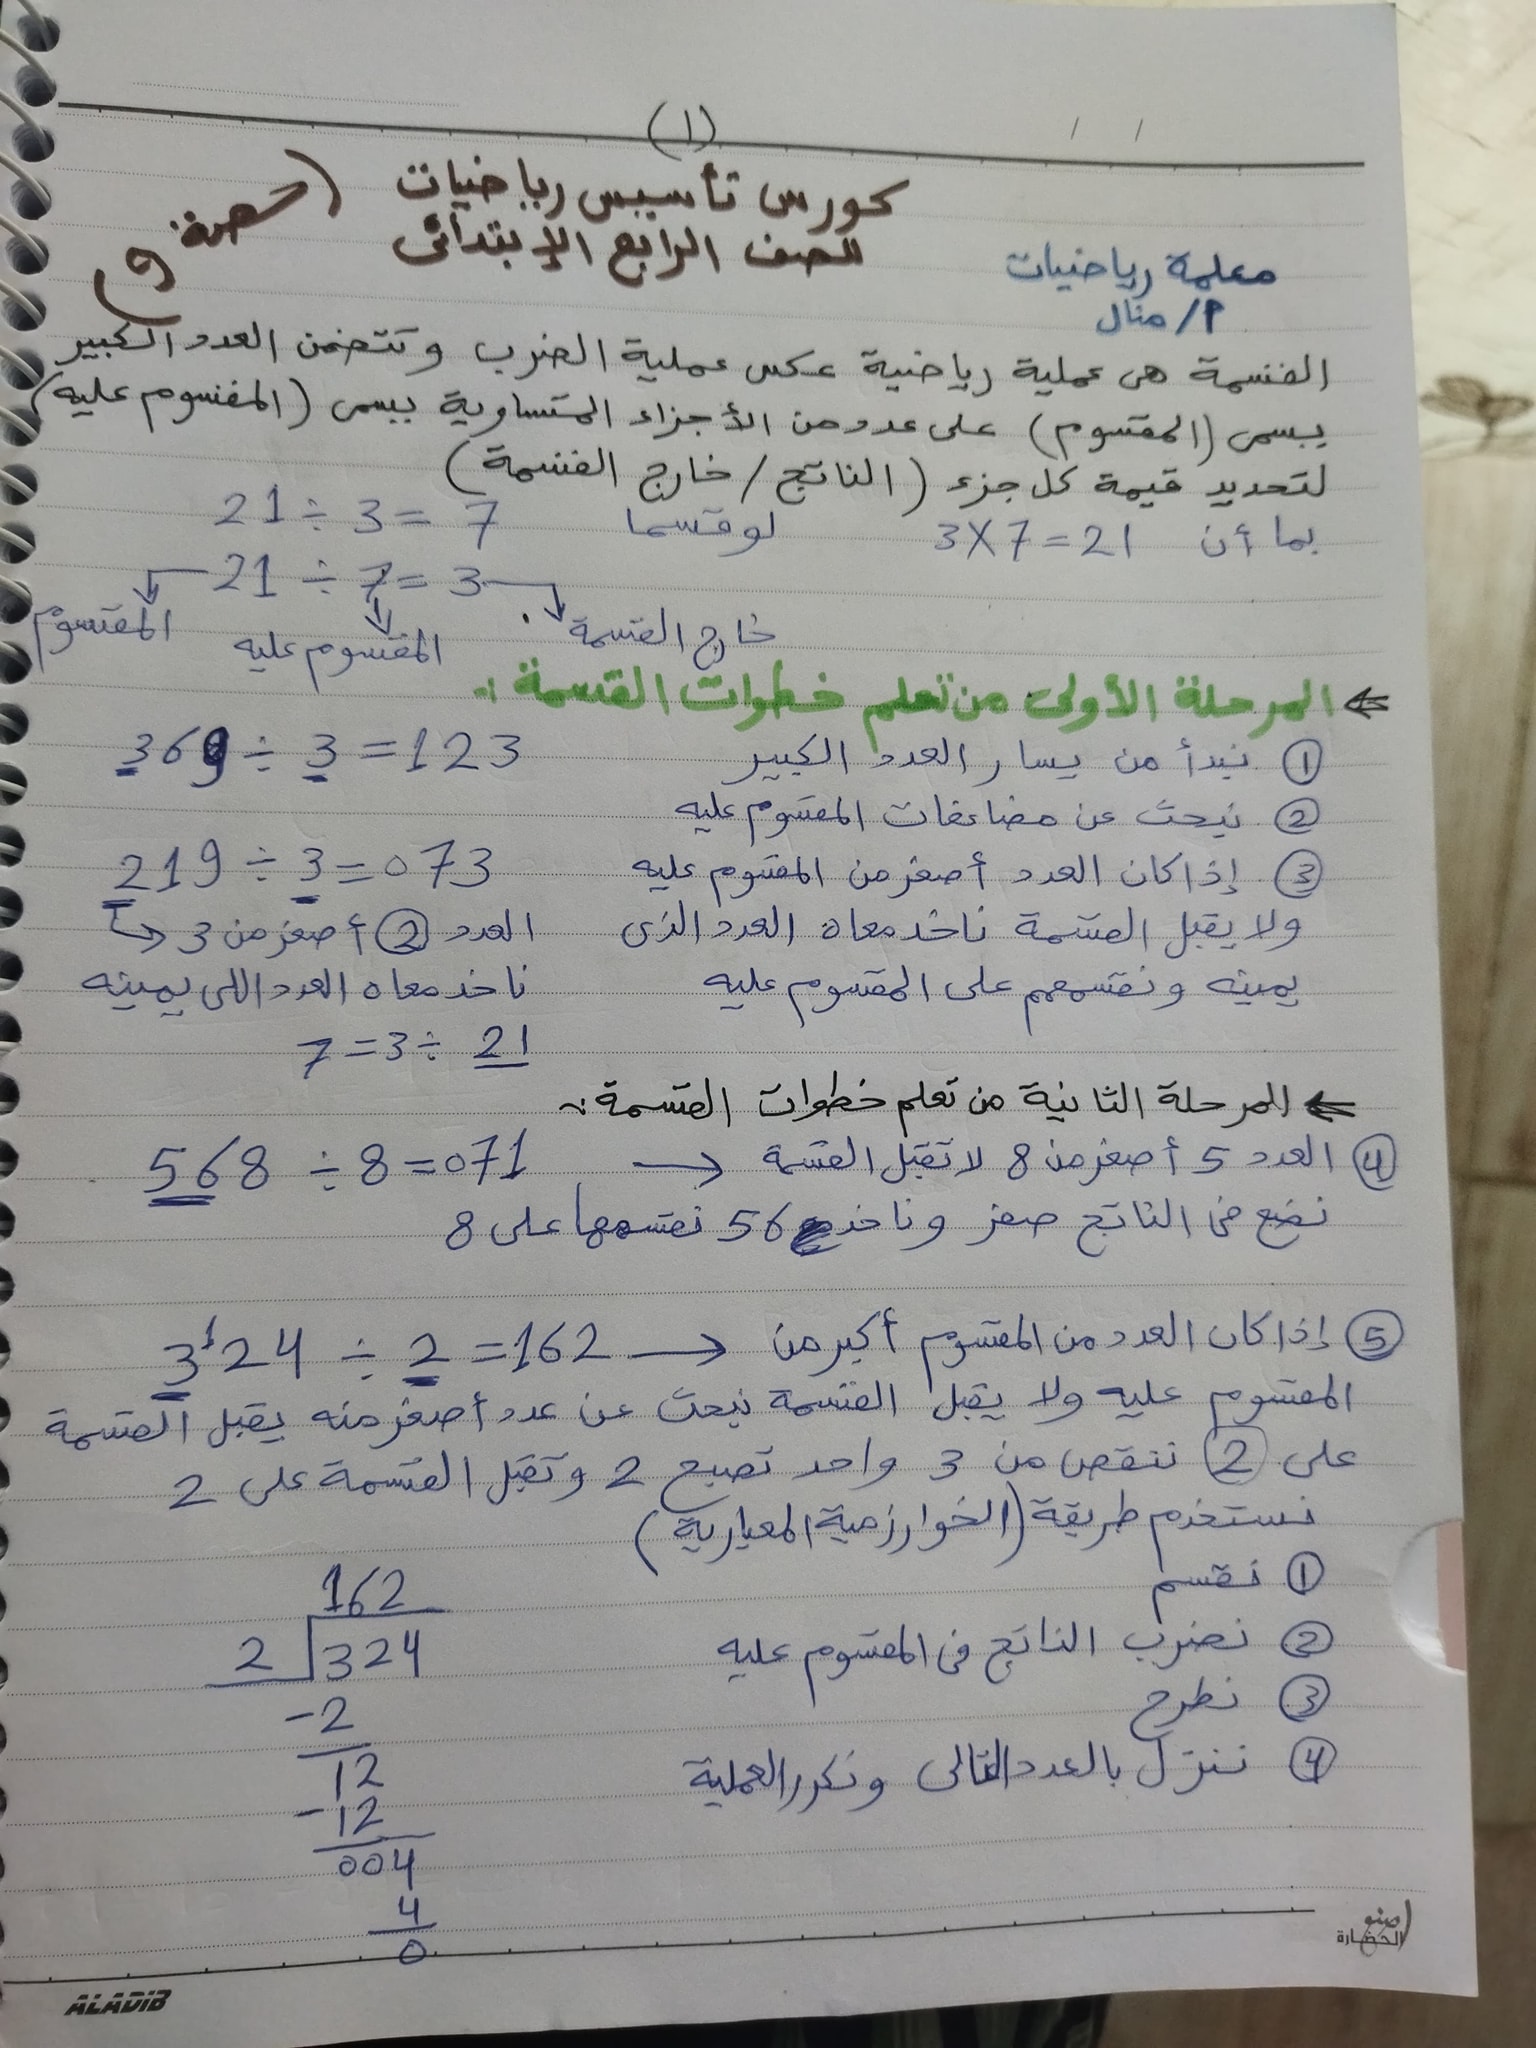 (١)
كورس تأسيس رياضيات
للصف الرابع الإبتدائى
معلمة رياضيات
أ/ منال
القسمة هى عملية رياضية عكس عملية الضرب وتتضمن العدد الكبير
يسمى (المقسوم) على عدد من الأجزاء المتساوية يسمى (المقسوم عليه)
لتحديد قيمة كل جزء (الناتج / خارج القسمة)
بما أن 3X7=21 لو قسما 21÷3=7
21÷7=3
خارج القسمة المقسوم عليه المقسوم
← المرحلة الأولى من تعلم خطوات القسمة :-
① نبدأ من يسار العدد الكبير 369÷3=123
② نبحث عن مضاعفات المقسوم عليه
③ إذا كان العدد أصغر من المقسوم عليه 219÷3=073
ولا يقبل القسمة ناخد معاه العدد الذى العدد ② أصغر من 3
يمينه ونقسمهم على المقسوم عليه ناخد معاه العدد اللى يمينه
7=3÷21
← المرحلة الثانية من تعلم خطوات القسمة :-
④ العدد 5 أصغر من 8 لا تقبل القسمة → 568÷8=071
نضع فى الناتج صفر وناخد 56 نقسمها على 8
⑤ إذا كان العدد من المقسوم أكبر من → 3¹24÷2=162
المقسوم عليه ولا يقبل القسمة نبحث عن عدد أصغر منه يقبل القسمة
على ② ننقص من 3 واحد تصبح 2 وتقبل القسمة على 2
نستخدم طريقة (الخوارزمية المعيارية)
① نقسم
② نضرب الناتج فى المقسوم عليه
③ نطرح
④ ننزل بالعدد التالى ونكرر العملية
162
2 324
-2
12
-12
004
4
0
صنع
الحضارة
ALADIB